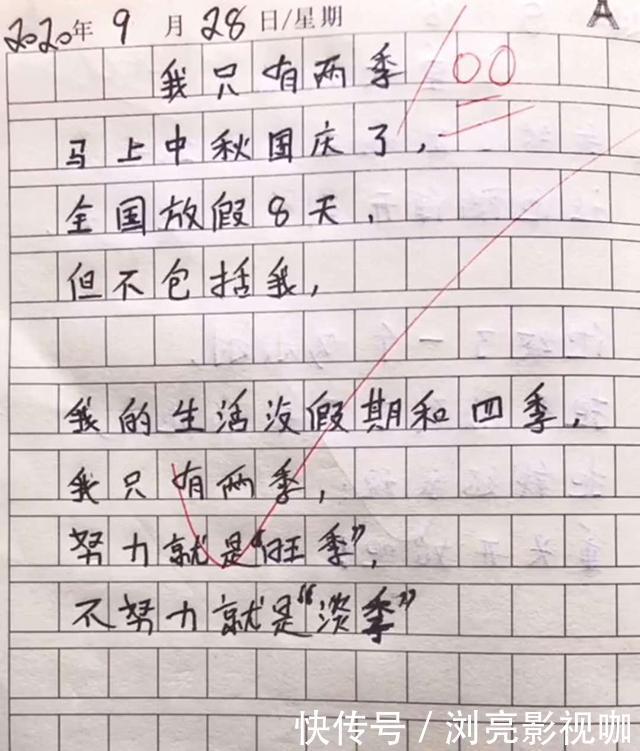 2020年 9 月 28 日/星期
A
我只有两季 100
马上中秋国庆了，
全国放假8天，
但不包括我，
我的生活没假期和四季，
我只有两季，
努力就是“旺季”，
不努力就是“淡季”
快传号 / 浏亮影视咖